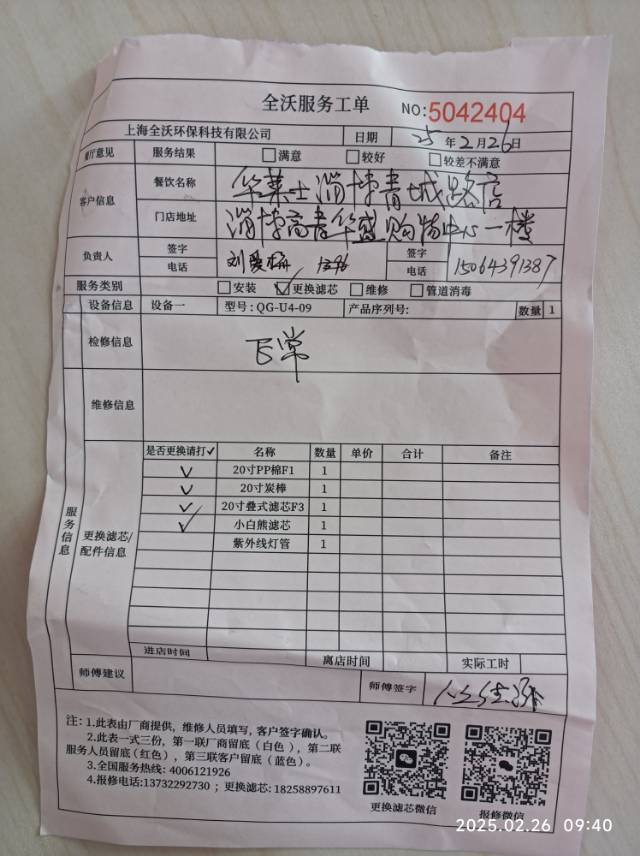 全沃服务工单 NO:5042404
上海全沃环保科技有限公司 日期 25年2月26日
餐厅意见 服务结果 □满意 □较好 □较差不满意
客户信息 餐饮名称 华莱士淄博青城路店
门店地址 淄博高青华盛购物中心一楼
负责人 签字 签字
电话 电话 15064391387
服务类别 □安装 ☑更换滤芯 □维修 □管道消毒
设备信息 设备一 型号:QG-U4-09 产品序列号: 数量 1
服务信息
检修信息 正常
维修信息
更换滤芯/配件信息
是否更换请打✓ 名称 数量 单价 合计 备注
✓ 20寸PP棉F1 1
✓ 20寸炭棒 1
✓ 20寸叠式滤芯F3 1
✓ 小白熊滤芯 1
紫外线灯管 1
进店时间 离店时间 实际工时
师傅建议 师傅签字
注:1.此表由厂商提供,维修人员填写,客户签字确认。
2.此表一式三份,第一联厂商留底(白色),第二联
服务人员留底(红色),第三联客户留底(蓝色)。
3.全国服务热线: 4006121926
4.报修电话:13732292730 ; 更换滤芯: 18258897611
更换滤芯微信 报修微信
2025.02.26 09:40